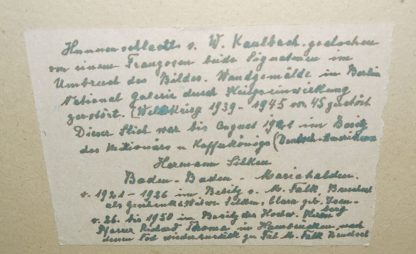 Hunnenschlacht v. W. Kaulbach. gestochen
von einem Franzosen beide Signaturen im
Umbruch des Bildes. Wandgemälde in Berlin
National galerie durch Kriegseinwirkung
zerstört. (Weltkrieg 1939 - 1945 vor 45 zerstört
Dieser Stich war bis August 1921 im Besitz
des Millionärs u Kaffeekönigs (Deutsch-
Hermann Sielken
Baden-Baden - Mariahalden.
v. 1921 - 1926 im Besitz v. M. Falk, Bruchsal
als Geschenk Sielken, Clara geb.
v. 26. bis 1950 im Besitz des Hochw. Herrn
Pfarrer Richard Thoma in Hambrücken, nach
dessen Tod wieder zurück zu Frl M. Falk Bruchsal